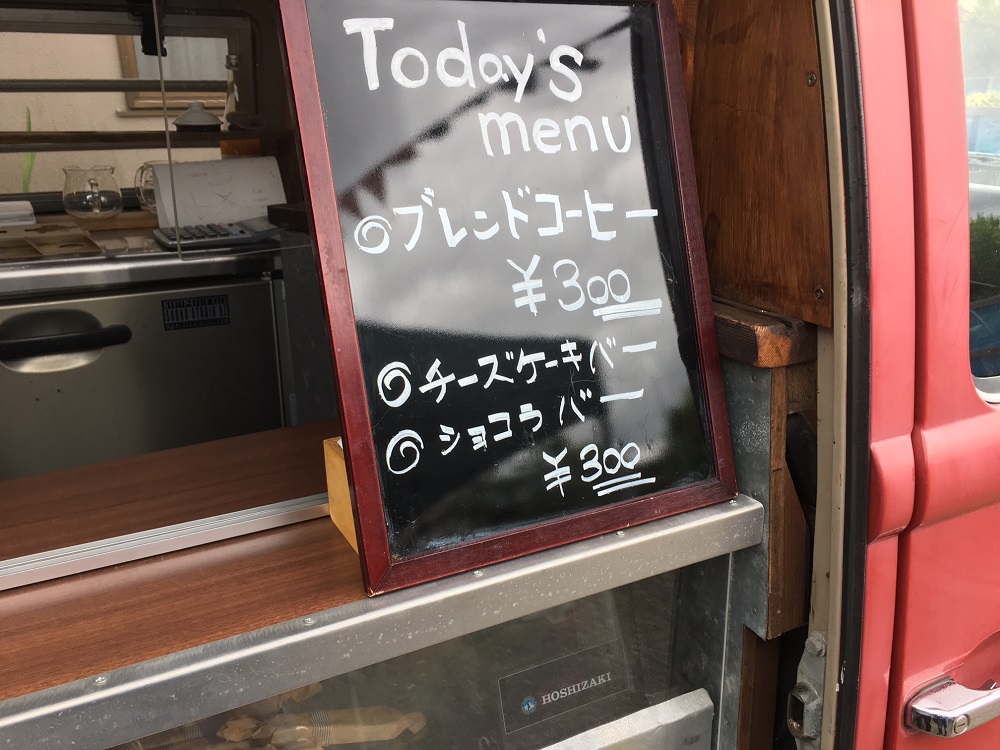 Today's
menu
ブレンドコーヒー
¥300
チーズケーキバー
ショコラバー
¥300
HOSHIZAKI